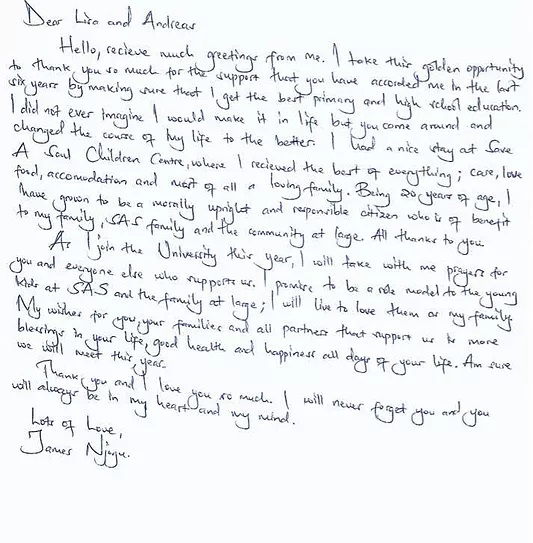 Dear Lisa and Andreas
Hello, recieve much greetings from me. I take this golden opportunity
to thank you so much for the support that you have accorded me in the last
six years by making sure that I get the best primary and high school education.
I did not ever imagine I would make it in life but you come around and
changed the course of my life to the better. I had a nice stay at Save
A Soul Children Centre, where I recieved the best of everything; care, love
food, accomodation and most of all a loving family. Being 20 years of age, I
have grown to be a morally upright and responsible citizen who is of benefit
to my family, SAS family and the community at large. All thanks to you.
As I join the University this year, I will take with me prayers for
you and everyone else who supports us. I promise to be a role model to the young
kids at SAS and the family at large; I will live to love them as my family.
My wishes for you, your families and all partners that support us is more
blessings in your life, good health and happiness all days of your life. Am sure
we will meet this year.
Thank you and I love you so much. I will never forget you and you
will always be in my heart and my mind.
Lots of Love,
James Njogu.